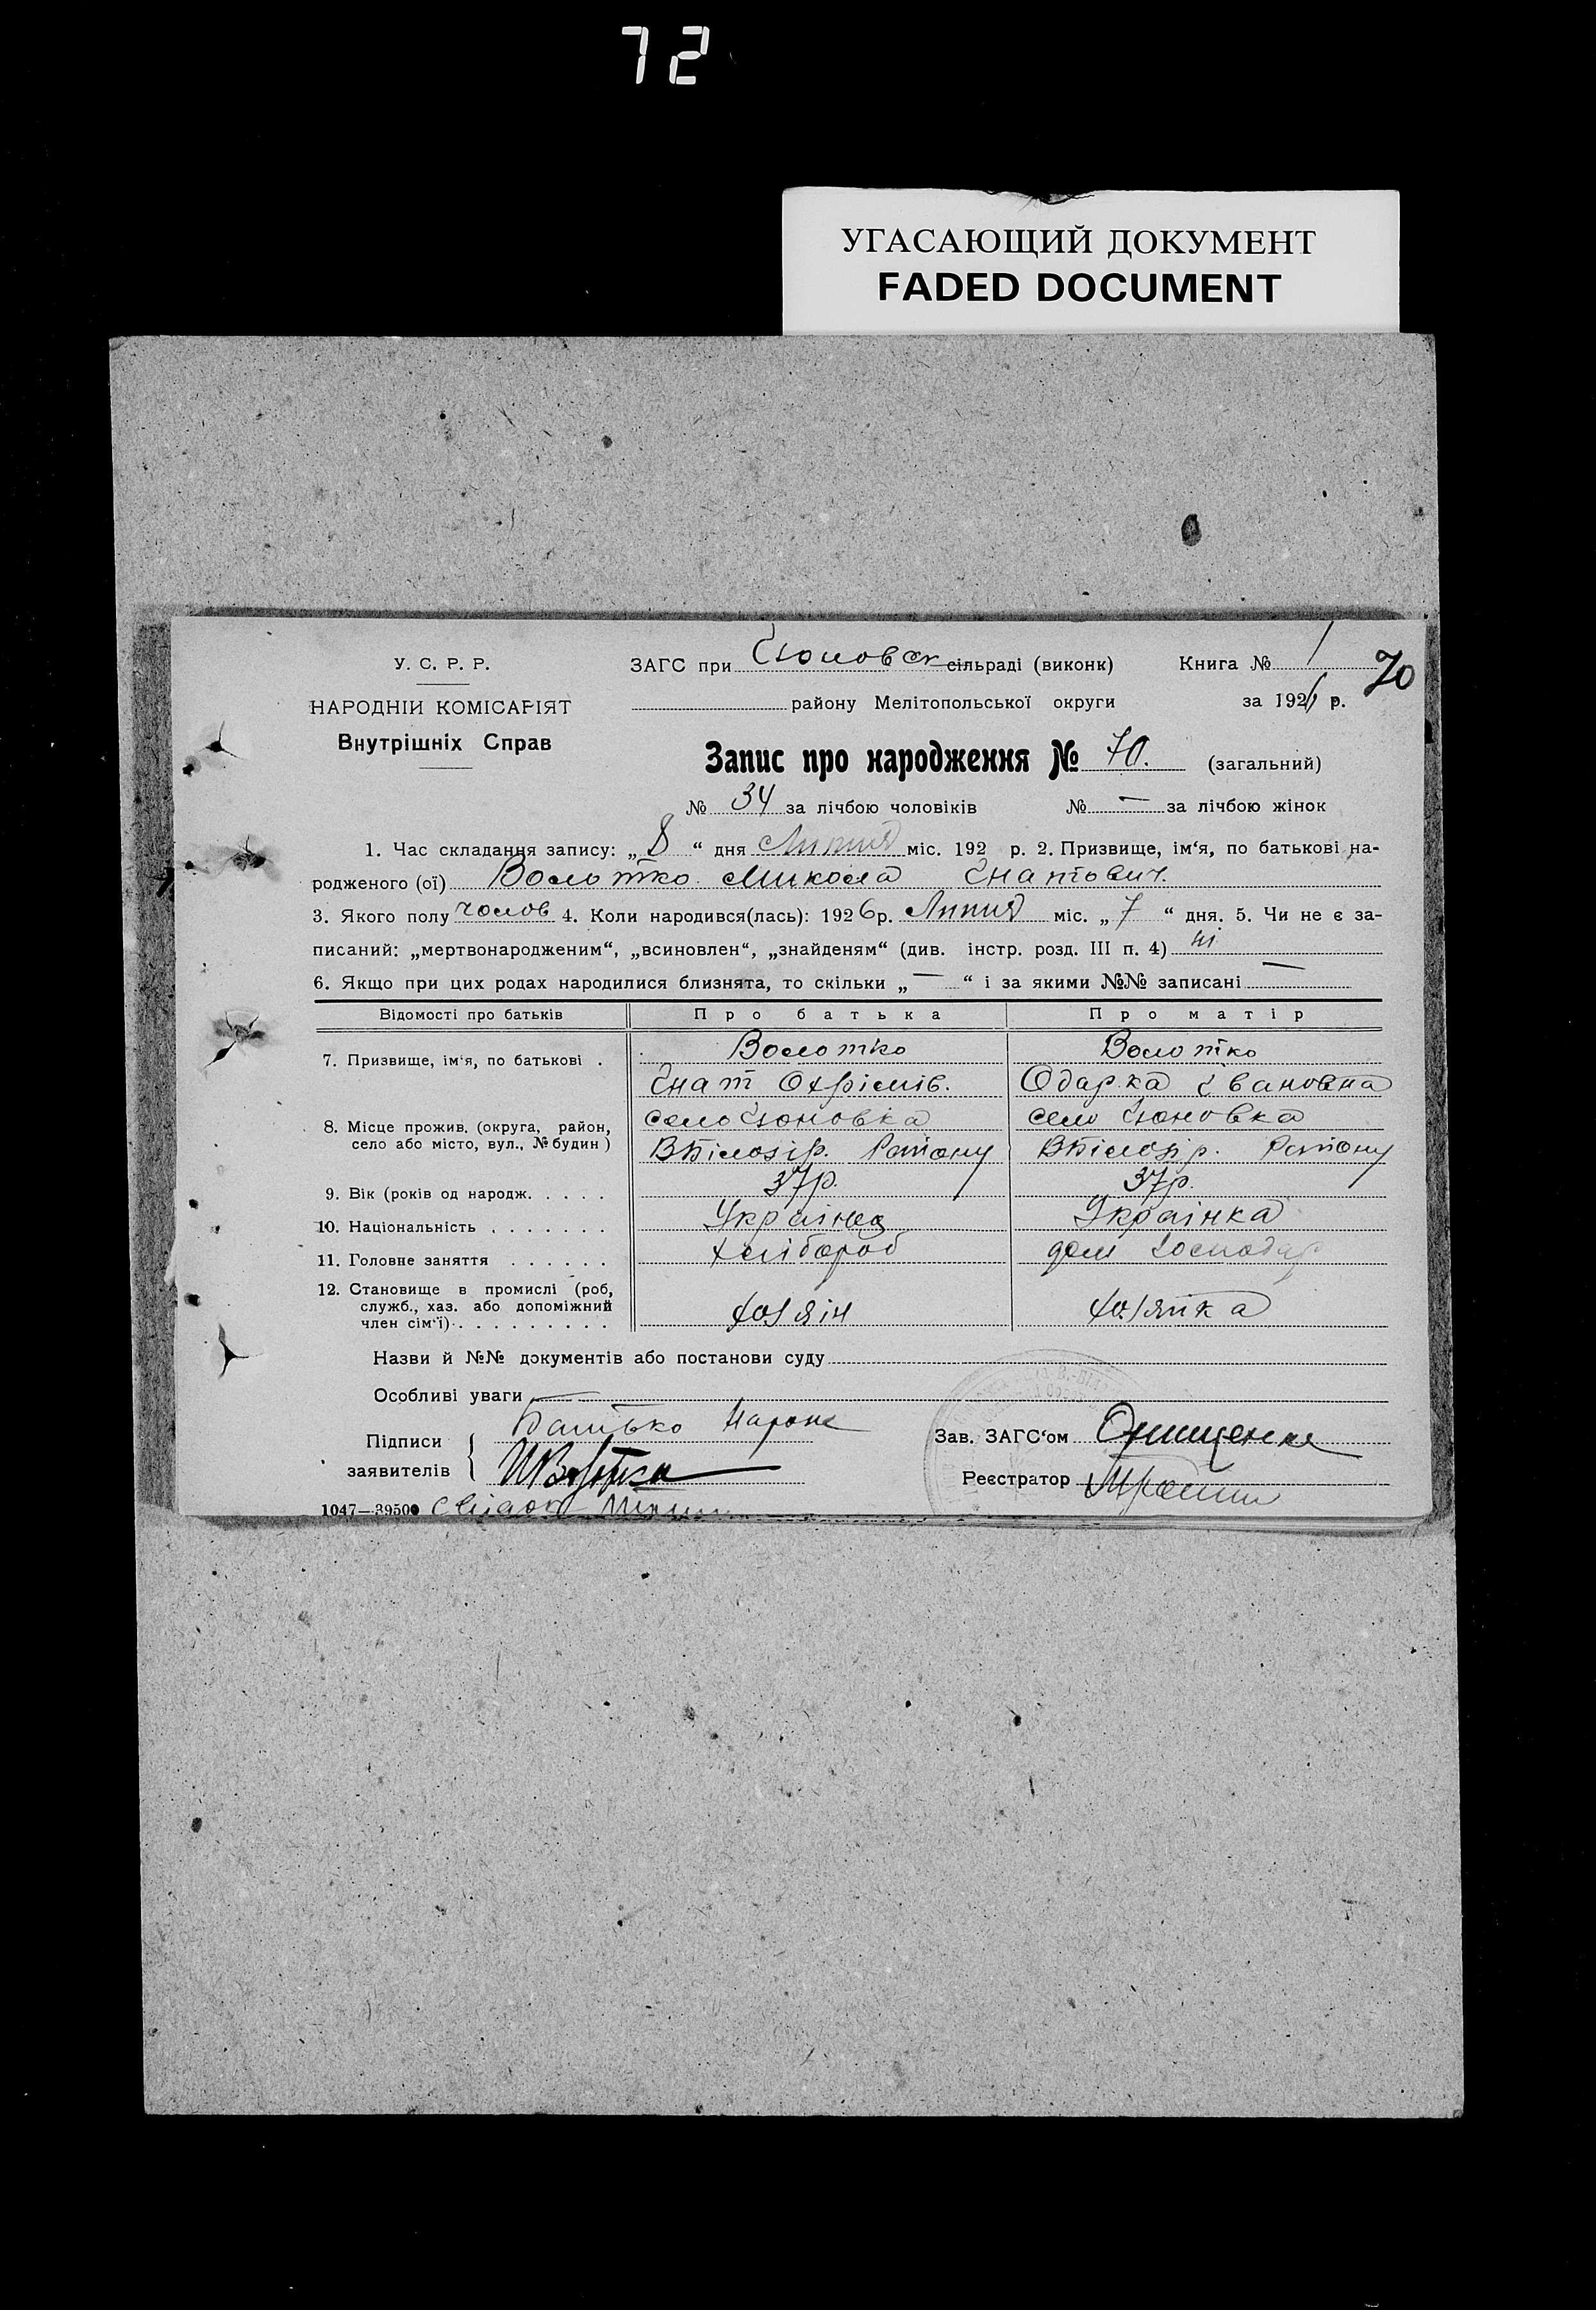 72
УГАСАЮЩИЙ ДОКУМЕНТ
FADED DOCUMENT
У. С. Р. Р.
НАРОДНІЙ КОМІСАРІЯТ
Внутрішніх Справ
ЗАГС при сільраді (виконк) Книга № 1
70
району Мелітопольської округи за 1926 р.
Запис про народження № 70. (загальний)
№ 34 за лічбою чоловіків № — за лічбою жінок
1. Час складання запису: „ 8 “ дня Липня міс. 192 р. 2. Призвище, ім‘я, по батькові на-
родженого (ої) Волотко Микола Гнатович.
3. Якого полу чолов 4. Коли народився(лась): 1926 р. Липня міс. „ 7 “ дня. 5. Чи не є за-
писаний: „мертвонародженим“, „всиновлен“, „знайденям“ (див. інстр. розд. III п. 4) ні
6. Якщо при цих родах народилися близнята, то скільки „ — “ і за якими №№ записані —
Відомості про батьків Про батька Про матір
7. Призвище, ім‘я, по батькові . Волотко Волотко
Гнат Охрімів. Одарка Івановна
8. Місце прожив. (округа, район, село або місто, вул., № будин ) село село
ВБілозір. Району ВБілозір. Району
9. Вік (років од народж. . . . . 37р. 37р.
10. Національність . . . . . . . Українец Українка
11. Головне заняття . . . . . . хлібороб дом господар
12. Становище в промислі (роб, служб., хаз. або допоміжний член сім‘ї) . . . . . . . . . хозяін хозяйка
Назви й №№ документів або постанови суду
Особливі уваги —
Підписи заявителів { Батько
Зав. ЗАГС‘ом Онищенко
Реєстратор
1047—39500